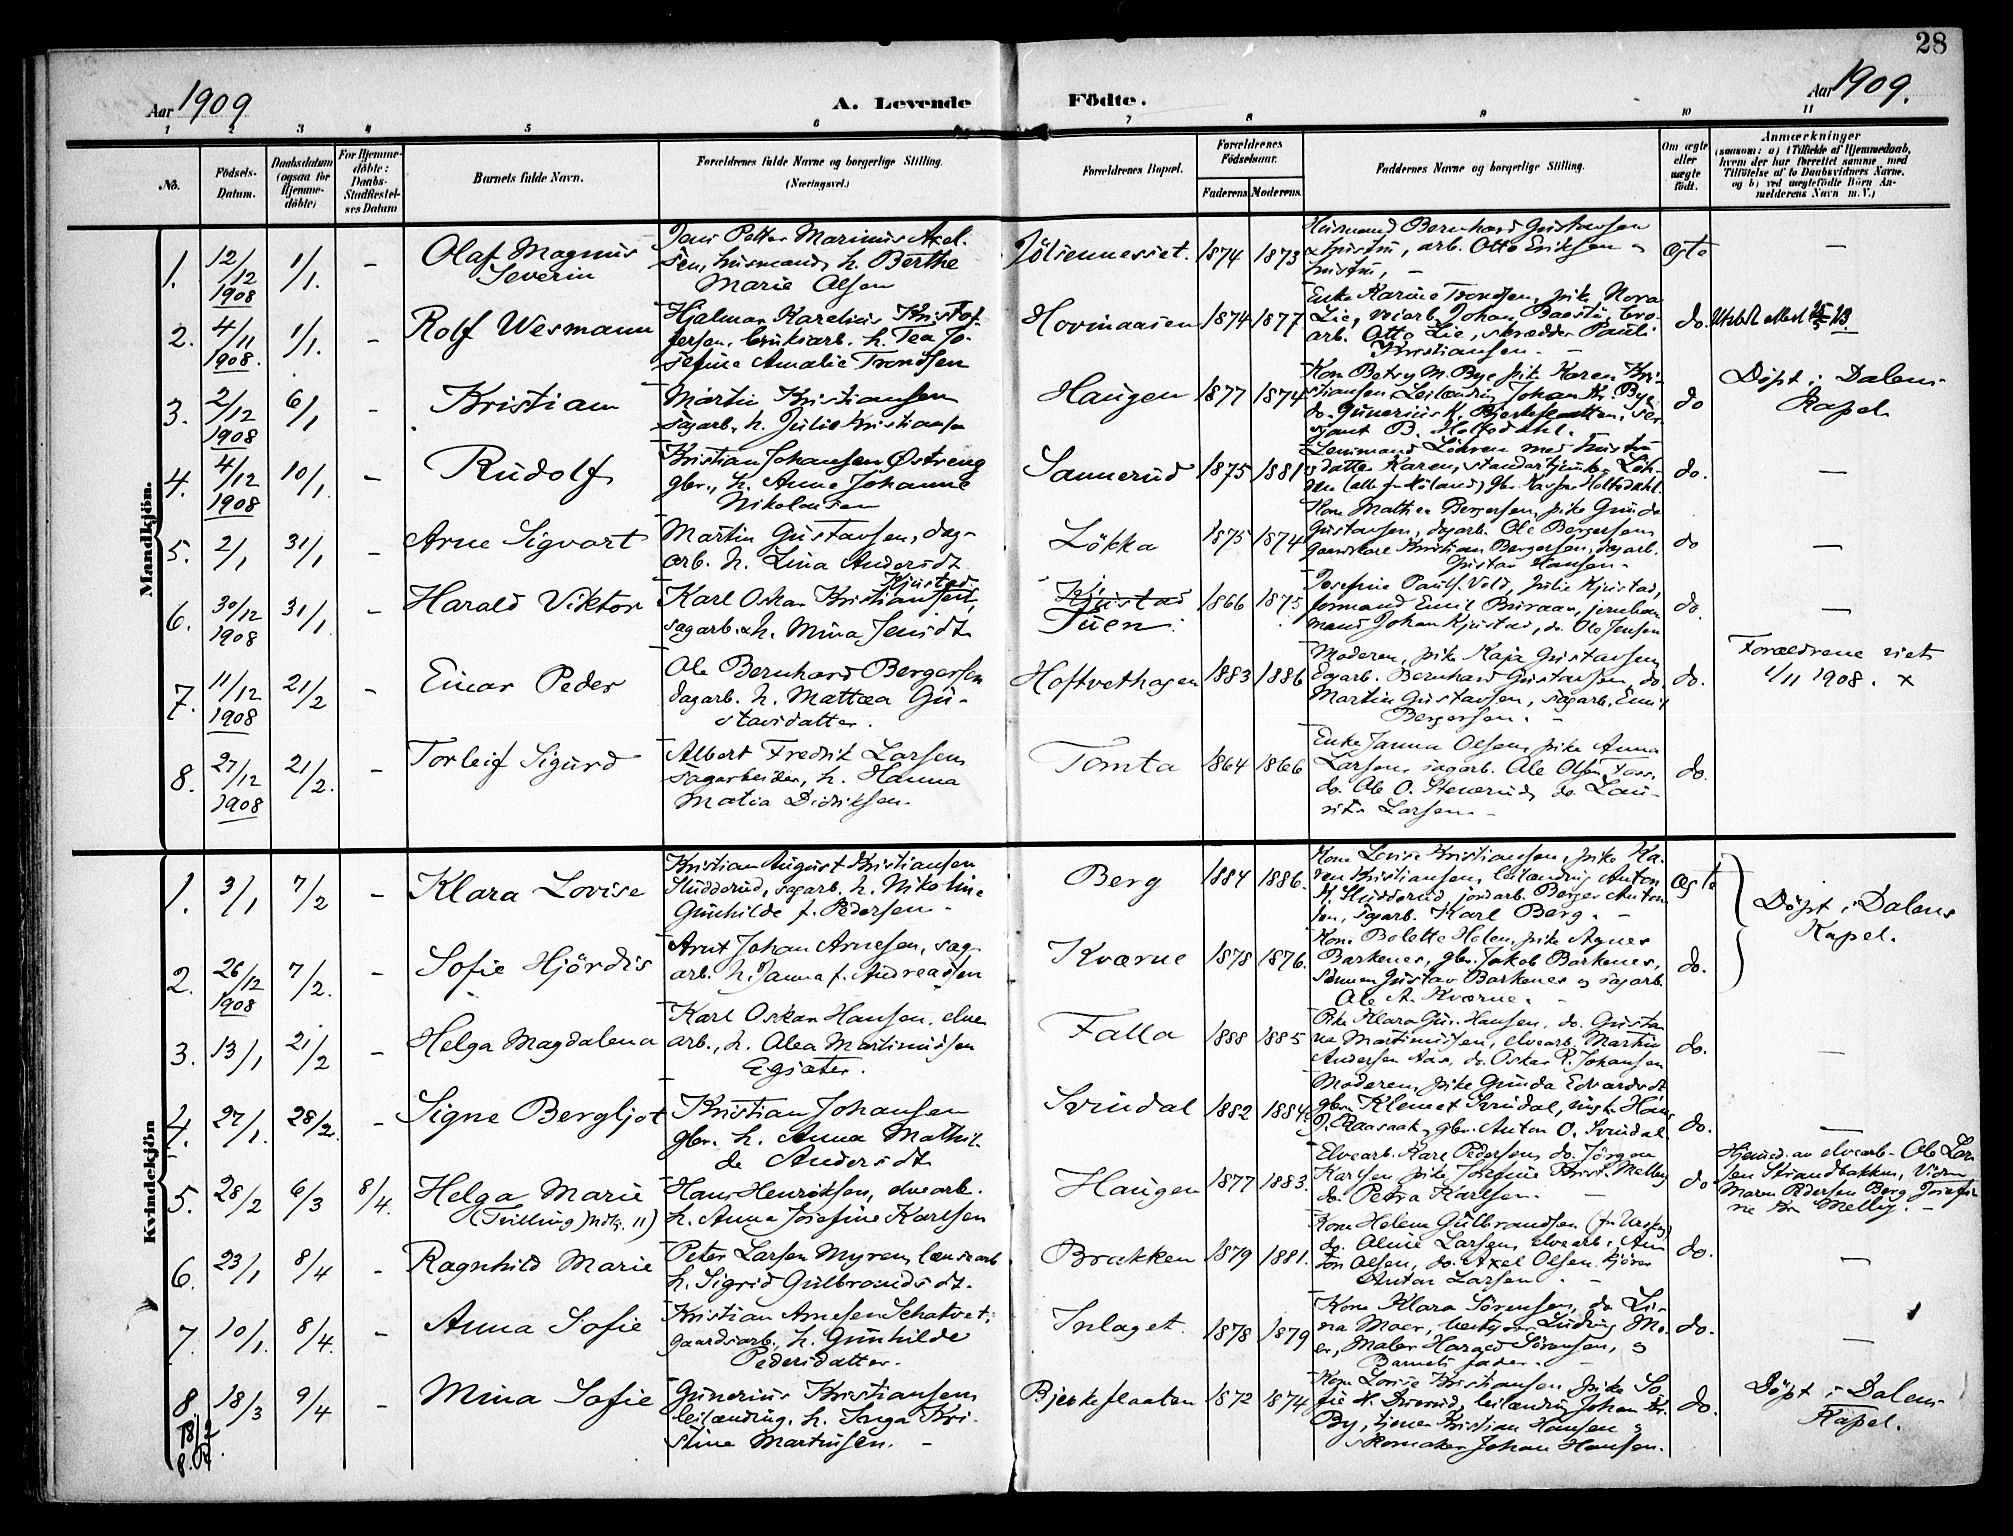 28
Aar 1909
A. Levende
Födte.
Aar 1909.
1
2
3
4
5
6
7
8
9
10
11
No.
Födsels-
Datum.
Daabsdatum
(ogsaa for
Hjemme-
döbte)
For Hjemme-
döbte:
Daabs-
Stadfæstel-
ses Datum
Barnets fulde Navn.
Forældrenes fulde Navne og borgerlige Stilling.
(Næringsvei.)
Forældrenes Bopæl.
Forældrenes
Födselsaar.
Faderens
Moderens.
Faddernes Navne og borgerlige Stilling.
Om ægte
eller
uægte
födt.
Anmærkninger
(saasom: a) i Tilfælde af Hjemmedaab,
hvem der har forrettet samme, med
Tilföielse af to Daabsvidners Navne,
og b) ved uægtefödte Börn An-
melderens Navn m. V.)
Mandkjön.
1. 12/12 1908 1/1. – Olaf Magnus
Severin
Jens Petter Marinius Axel-
sen, husmand, h. Berthe
Marie Olsen
1874 1873
Husmand Bernhard Gustavsen
& hustru, arb. Otto Eriksen &
hustru, –
Ægte –
2. 4/11 1908. 1/1. – Rolf Wesmann
Hjalmar Karelius Kristof-
fersen, bruksarb. h. Tea Jo-
sefine Amalie Trondsen
Hovinaasen 1874 1877
Enke Karine Trondsen, pike Nora
Lie, veiarb. Johan Baastu, bro-
arb. Otto Lie, skrædder Pauli
Kristiansen. –
do.
3. 2/12 1908 6/1 – Kristian
Martin Kristiansen
sagarb., h. Julie Kristiansen
Haugen 1877 1874
Kone Betsy M. Bye, pike Karen Kri-
stiansen, Leilænding Johan Kr. Bye,
do. Gunerius K. Bjerkeslaatten, ser-
sjant B. Holtsdahl.
do
Döpt i Dalens
Kapel.
4. 4/12 1908 10/1 – Rudolf
Kristian Johansen Østreng
gbr., h. Anne Johanne
Nikolausen
Sannerud 1875 1881
datter Karen,
do. –
5. 2/1 31/1 – Arne Sigvart
Martin Gustavsen, dag-
arb. h. Lina Andersdt.
Lökka 1875 1874
Kone Mathea Bergersen, pike Gunda
Gustavsen, dagarb. Ole Bergersen,
gaardskarl Kristian Bergersen, dagarb.
Gustav Hansen –
do –
6. 30/12 1908 31/1 – Harald Viktor
Kjustad
Karl Oskar Kristiansen,
sagarb. & h. Mina Jensdt.
Kjustad
Tuen. 1866 1875
Josefine Pauls. Vold, Julie Kjustad,
formand Emil Buraas, jernban-
mand Johan Kjustad, do. Ole Jensen
do. –
7. 11/12 1908 21/2 – Einar Peder
Ole Bernhard Bergersen
dagarb. h. Mattea Gu-
stavsdatter.
Hoftvethagen 1883 1886
Moderen, pike Kaja Gustavsen,
Dagarb. Bernhard Gustavsen, do.
Martin Gustavsen, sagarb. Emil
Bergersen. –
do.
Forældrene viet
1/11 1908. x
8. 27/12 1908 21/2. – Torleif Sigurd
Albert Fredrik Larsen,
sagarbeider, h. Hanna
Matia Didriksen.
Tomta 1864 1866
Enke Janna Olsen, pike Anna
Larsen, sagarb. Ole Olsen
do. Ole O. Stenerud, do. Lau-
rits Larsen –
do.
Kvindekjön
1. 3/1 7/2 – Klara Lovise
Kristian August Kristiansen
Hudderud, sagarb. h. Nikoline
Gunhilde f. Pedersen –
Berg 1884 1886.
Kone Lovise Kristiansen, pike Ka-
ren Kristiansen, leilænding Anton
H. Hudderud, jordarb. Berger Anton-
sen, sagarb. Karl Berg. –
Ægte
Döpt i Dalens
Kapel.
2. 26/12 1908 7/2. – Sofie Hjördis
Arnt Johan Arnesen, sag-
arb. h. Janna f. Andreassen
Kværne 1878 1876.
Kone Bolette Holen, pike Agnes
Barkenes, gbr. Jakob Barkenes,
sönnen Gustav Barkenes og sagarb.
Ole A. Kværne. –
do.
3. 13/1 21/2 – Helga Magdalena
Karl Oskar Hansen, elve-
arb., h. Olea Martinusen
Egsæter.
Falla 1888 1885
Pike Klara Gun. Hansen, do. Gusta-
va Martinusen, elvearb. Martin
Andersen Aas, do. Oskar P. Johansen
do. –
4. 27/1. 28/2. – Signe Bergljot
Kristian Johansen
gbr. h. Anna Mathil-
de Andersdt.
Svindal 1882 1884.
Moderen, pike Gunda Edvardsdt
gbr. Klemet Svindal, ungk. Hans
J. Raasaak, gbr. Anton O. Svindal.
do. –
5. 28/2 6/3 8/4. Helga Marie
(Tvilling) mdkj. 11)
Hans Henriksen, elvearb.
h. Anna Josefine Karlsen
Haugen 1877 1883.
Elvearb. Karl Pedersen, do. Jörgen
Karlsen, pike Josefine Krist. Melby
do. Petra Karlsen. –
do
Hjemmed. av elvearb. Ole Lar-
sen Strandbakken, Vidn.
Maren Pedersen Berg, Josefi-
ne Kr. Melby. –
6. 23/1 8/4 – Ragnhild Marie
Peter Larsen Myren, lænsearb
h. Sigrid Gulbrandsdt.
Brækken 1879 1881.
Kone Helene Gulbrandsen
do. Oline Larsen, elvearb. An-
ton Olsen, do. Axel Olsen, kjörer
Anton Larsen. –
do. –
7. 10/1. 8/4. – Anna Sofie
Kristian Arnesen Schatvet,
gaardsarb., h. Gunhilde
Pedersdatter. –
Inlaget. 1878 1879
Kone Klara Sörensen, do. Li-
na Moer, bestyrer Ludvig Mo-
er, Maler Harald Sörensen, &
Barnets fader. –
do. –
8 18/3 9/4 – Mina Sofie
Gunerius Kristiansen,
leilænding, h. Inga Kri-
stine Martinsen. –
Bjerkeslaaten 1872 1874
Kone Lovise Kristiansen, pike So-
fie H. leilænding Johan Kr.
By, tjener Kristian Hansen &
skomaker Johan Hansen.
do.
Döpt i Dalens
Kapel.